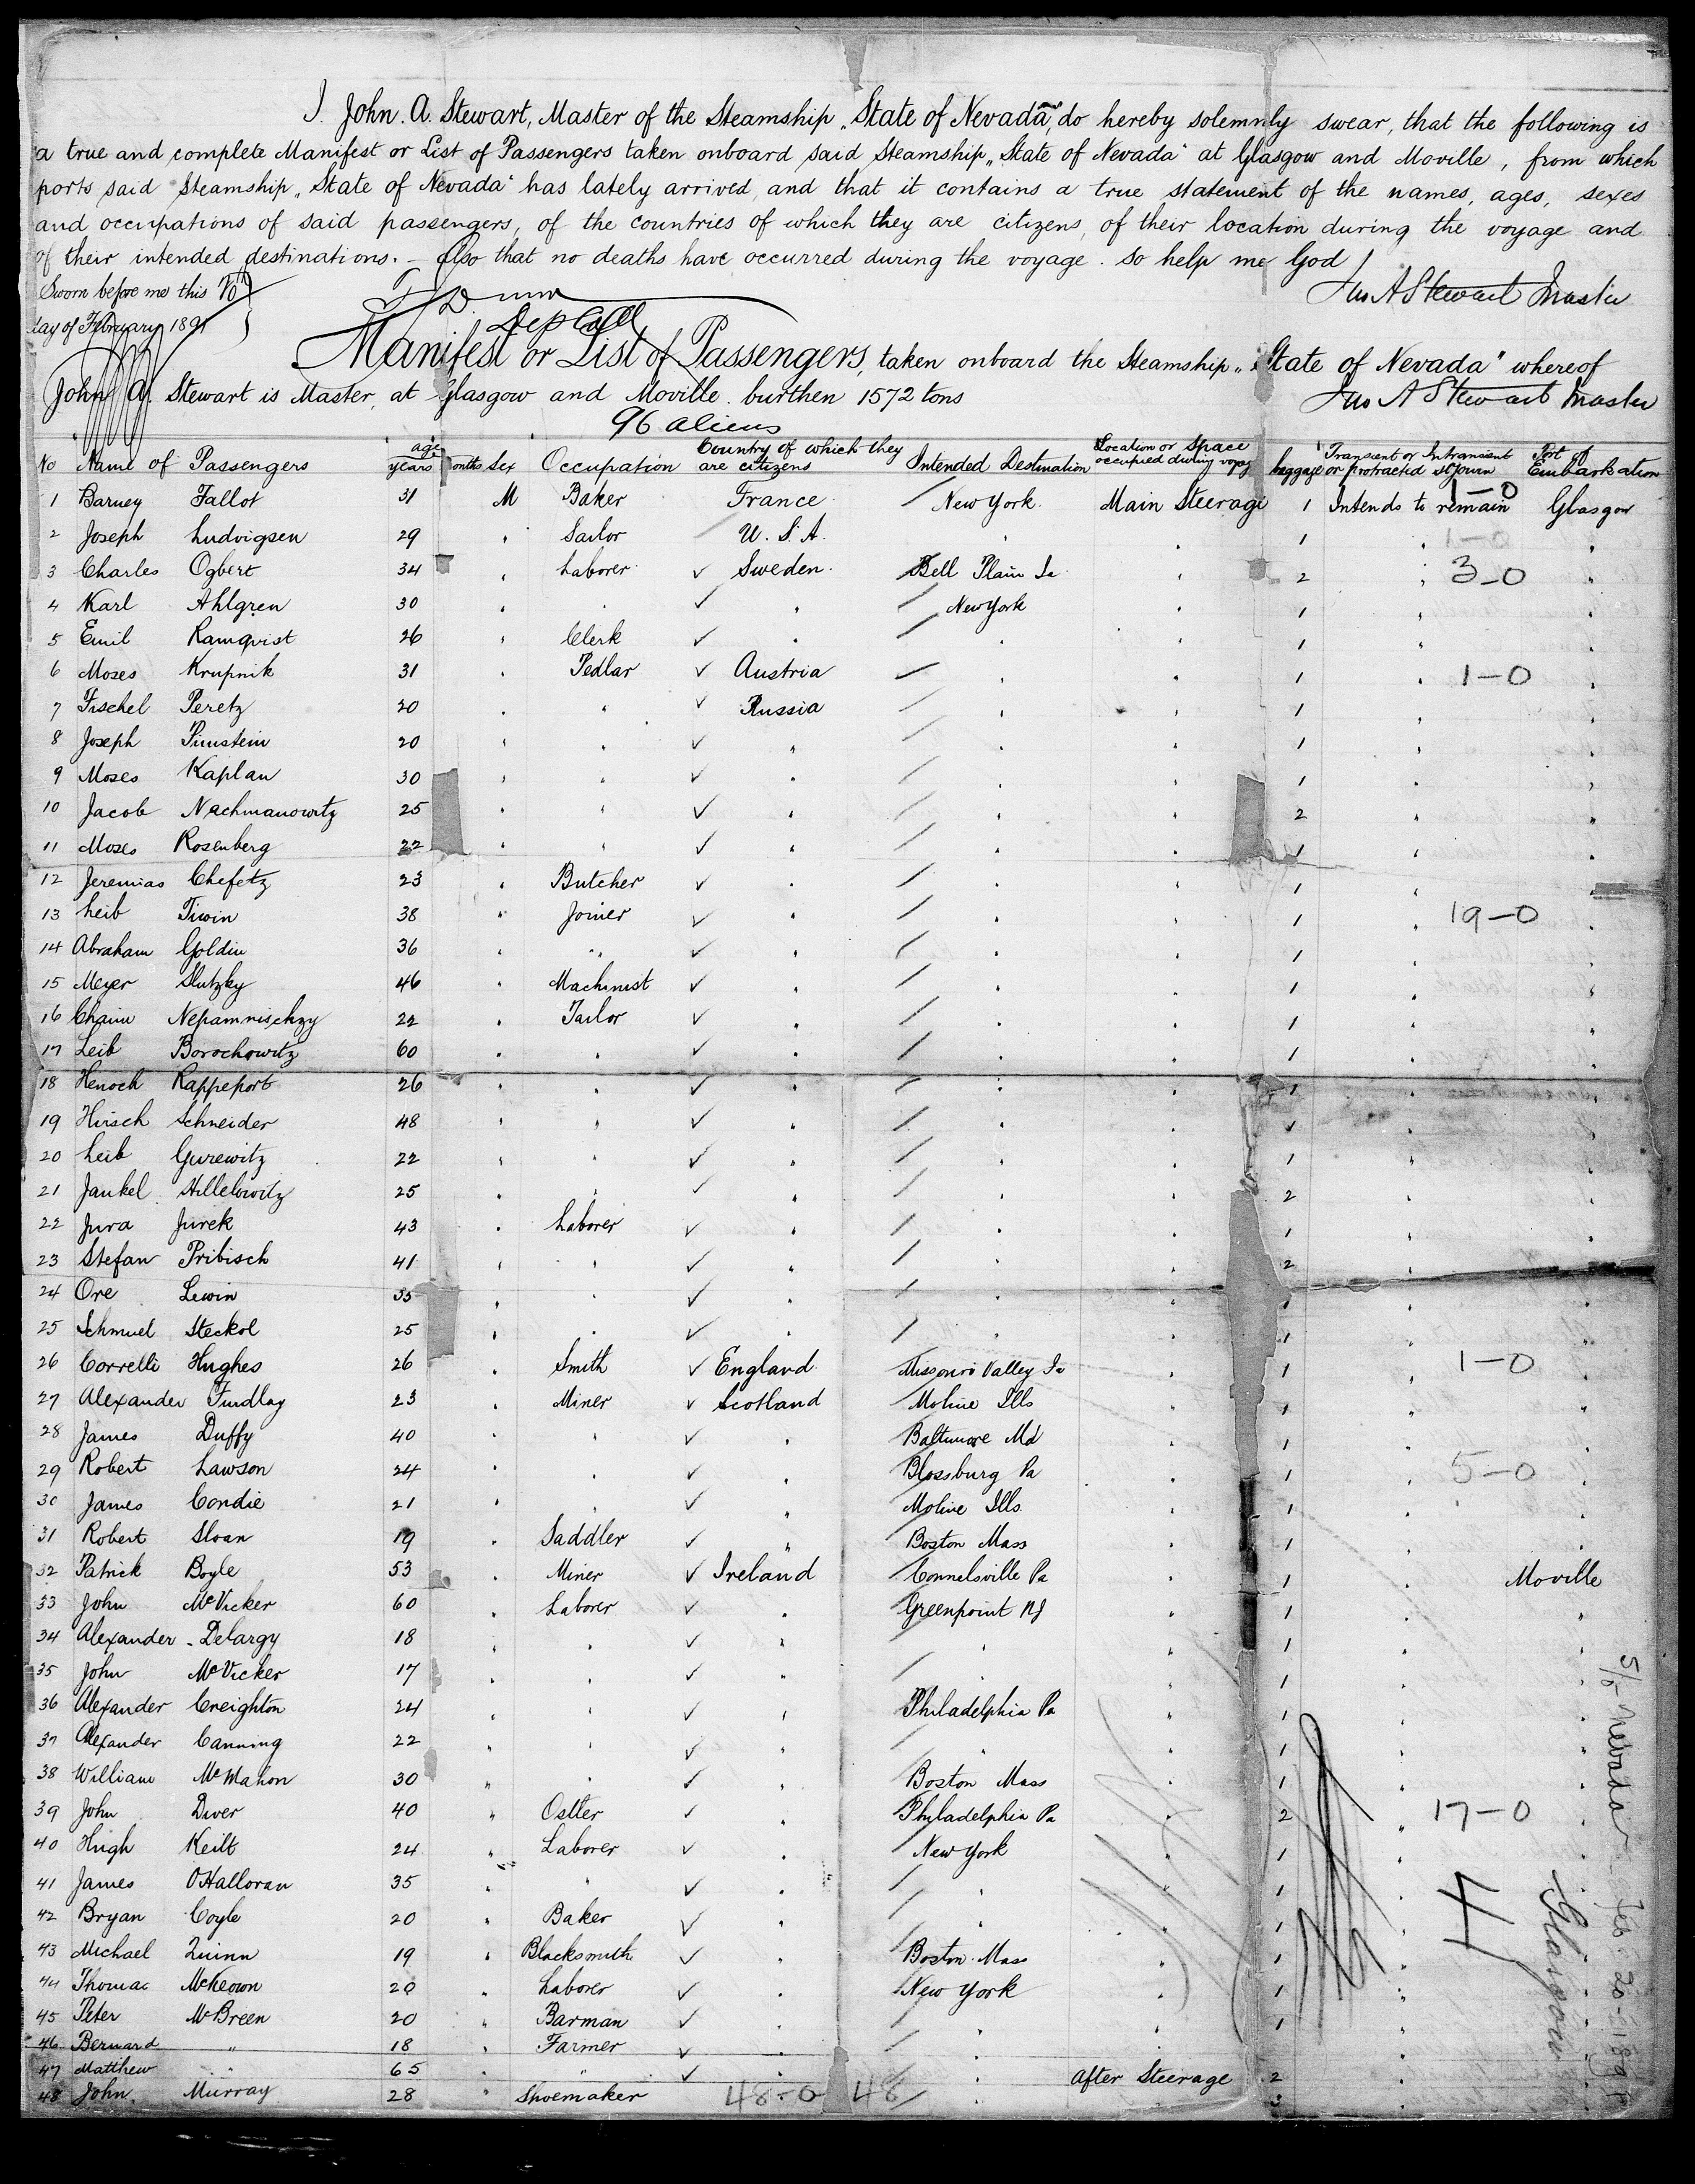 I. John. A. Stewart, Master of the Steamship „State of Nevada", do hereby solemnly swear, that the following is
a true and complete Manifest or List of Passengers taken onboard said Steamship „State of Nevada" at Glasgow and Moville, from which
ports said Steamship „State of Nevada" has lately arrived, and that it contains a true statement of the names, ages, sexes
and occupations of said passengers, of the countries of which they are citizens, of their location during the voyage and
of their intended destinations. – Also that no deaths have occurred during the voyage. So help me God
Sworn before me this 20th Jno A Stewart Master
day of February 1891 Dep Coll
Manifest or List of Passengers, taken onboard the Steamship „State of Nevada" whereof
John A. Stewart is Master, at Glasgow and Moville. burthen 1572 tons Jno A Stewart Master
96 aliens
No Name of Passengers age years months Sex Occupation Country of which they are citizens Intended Destination Location or Space occupied during voyag baggage Transient or Intransient or protracted sojourn Port of Embarkation
1 Barney Fallot 31 M Baker France / New York Main Steerage 1 Intends to remain 1-0 Glasgow
2 Joseph Ludvigsen 29 " Sailor / U.S.A. " " 1 " 1-0 "
3 Charles Ogbert 34 " Laborer ✓ Sweden / Bell Plain Ia " 2 " 3-0 "
4 Karl Ahlgren 30 " " ✓ " / New York " 1 " "
5 Emil Ramqvist 26 " Clerk ✓ " / " " 1 " "
6 Moses Krupnik 31 " Pedlar ✓ Austria / " " 1 " 1-0 "
7 Fischel Peretz 20 " " ✓ Russia / " " 1 " "
8 Joseph Pinnstein 20 " " ✓ " / " " 1 " "
9 Moses Kaplan 30 " " ✓ " / " " 1 " "
10 Jacob Nachmanowitz 25 " " ✓ " / " " 2 " "
11 Moses Rosenberg 22 " " ✓ " / " " 1 " "
12 Jeremias Chefetz 23 " Butcher ✓ " / " " 1 " "
13 Leib Tiwin 38 " Joiner ✓ " / " " 1 " 19-0 "
14 Abraham Goldin 36 " " ✓ " / " " 1 " "
15 Meyer Slutzky 46 " Machinist ✓ " / " " 1 " "
16 Chaim Nepamnischzy 22 " Tailor ✓ " / " " 1 " "
17 Leib Borochowitz 60 " " ✓ " / " " 1 " "
18 Henoch Rappeport 26 " " ✓ " / " " 1 " "
19 Hirsch Schneider 48 " " ✓ " / " " 1 " "
20 Leib Gurewitz 22 " " ✓ " / " " 1 " "
21 Jankel Hillelowitz 25 " " ✓ " / " " 2 " "
22 Jura Jurek 43 " Laborer ✓ " / " " 1 " "
23 Stefan Pribisch 41 " " ✓ " / " " 2 " "
24 Ore Lewin 35 " " ✓ " / " " 1 " "
25 Schmuel Steckol 25 " " ✓ " / " " 1 " "
26 Correlli Hughes 26 " Smith ✓ England / Missouri Valley Ia " 1 " 1-0 "
27 Alexander Findlay 23 " Miner ✓ Scotland / Moline Ills " 1 " "
28 James Duffy 40 " " ✓ " / Baltimore Md " 1 " "
29 Robert Lawson 24 " " ✓ " / Blossburg Pa " 1 " 5-0 "
30 James Condie 21 " " ✓ " / Moline Ills " 1 " "
31 Robert Sloan 19 " Saddler ✓ " / Boston Mass " 1 " "
32 Patrick Boyle 53 " Miner ✓ Ireland / Connelsville Pa " 1 " Moville
33 John McVicker 60 " Laborer ✓ " / Greenpoint NJ " 1 " "
34 Alexander Delargy 18 " " ✓ " / " " 1 " "
35 John McVicker 17 " " ✓ " / " " 1 " "
36 Alexander Creighton 24 " " ✓ " / Philadelphia Pa " 1 " "
37 Alexander Canning 22 " " ✓ " / " " 1 " "
38 William McMahon 30 " " ✓ " / Boston Mass " 1 " "
39 John Diver 40 " Ostler ✓ " / Philadelphia Pa " 2 " 17-0 "
40 Hugh Keilt 24 " Laborer ✓ " / New York " 1 " "
41 James O'Halloran 35 " " ✓ " / " " 1 " "
42 Bryan Coyle 20 " Baker ✓ " / " " 1 " "
43 Michael Quinn 19 " Blacksmith ✓ " / Boston Mass " 1 " "
44 Thomas McKeown 20 " Laborer ✓ " / New York " 1 " "
45 Peter McBreen 20 " Barman ✓ " / " " 1 " "
46 Bernard " 18 " Farmer ✓ " / " " "
47 Matthew " 65 " " ✓ " / " After Steerage 2 " "
48 John Murray 28 " Shoemaker 48-0 48 / " 3 "
S/S Nevada
Glasgow
Feb. 20-1891